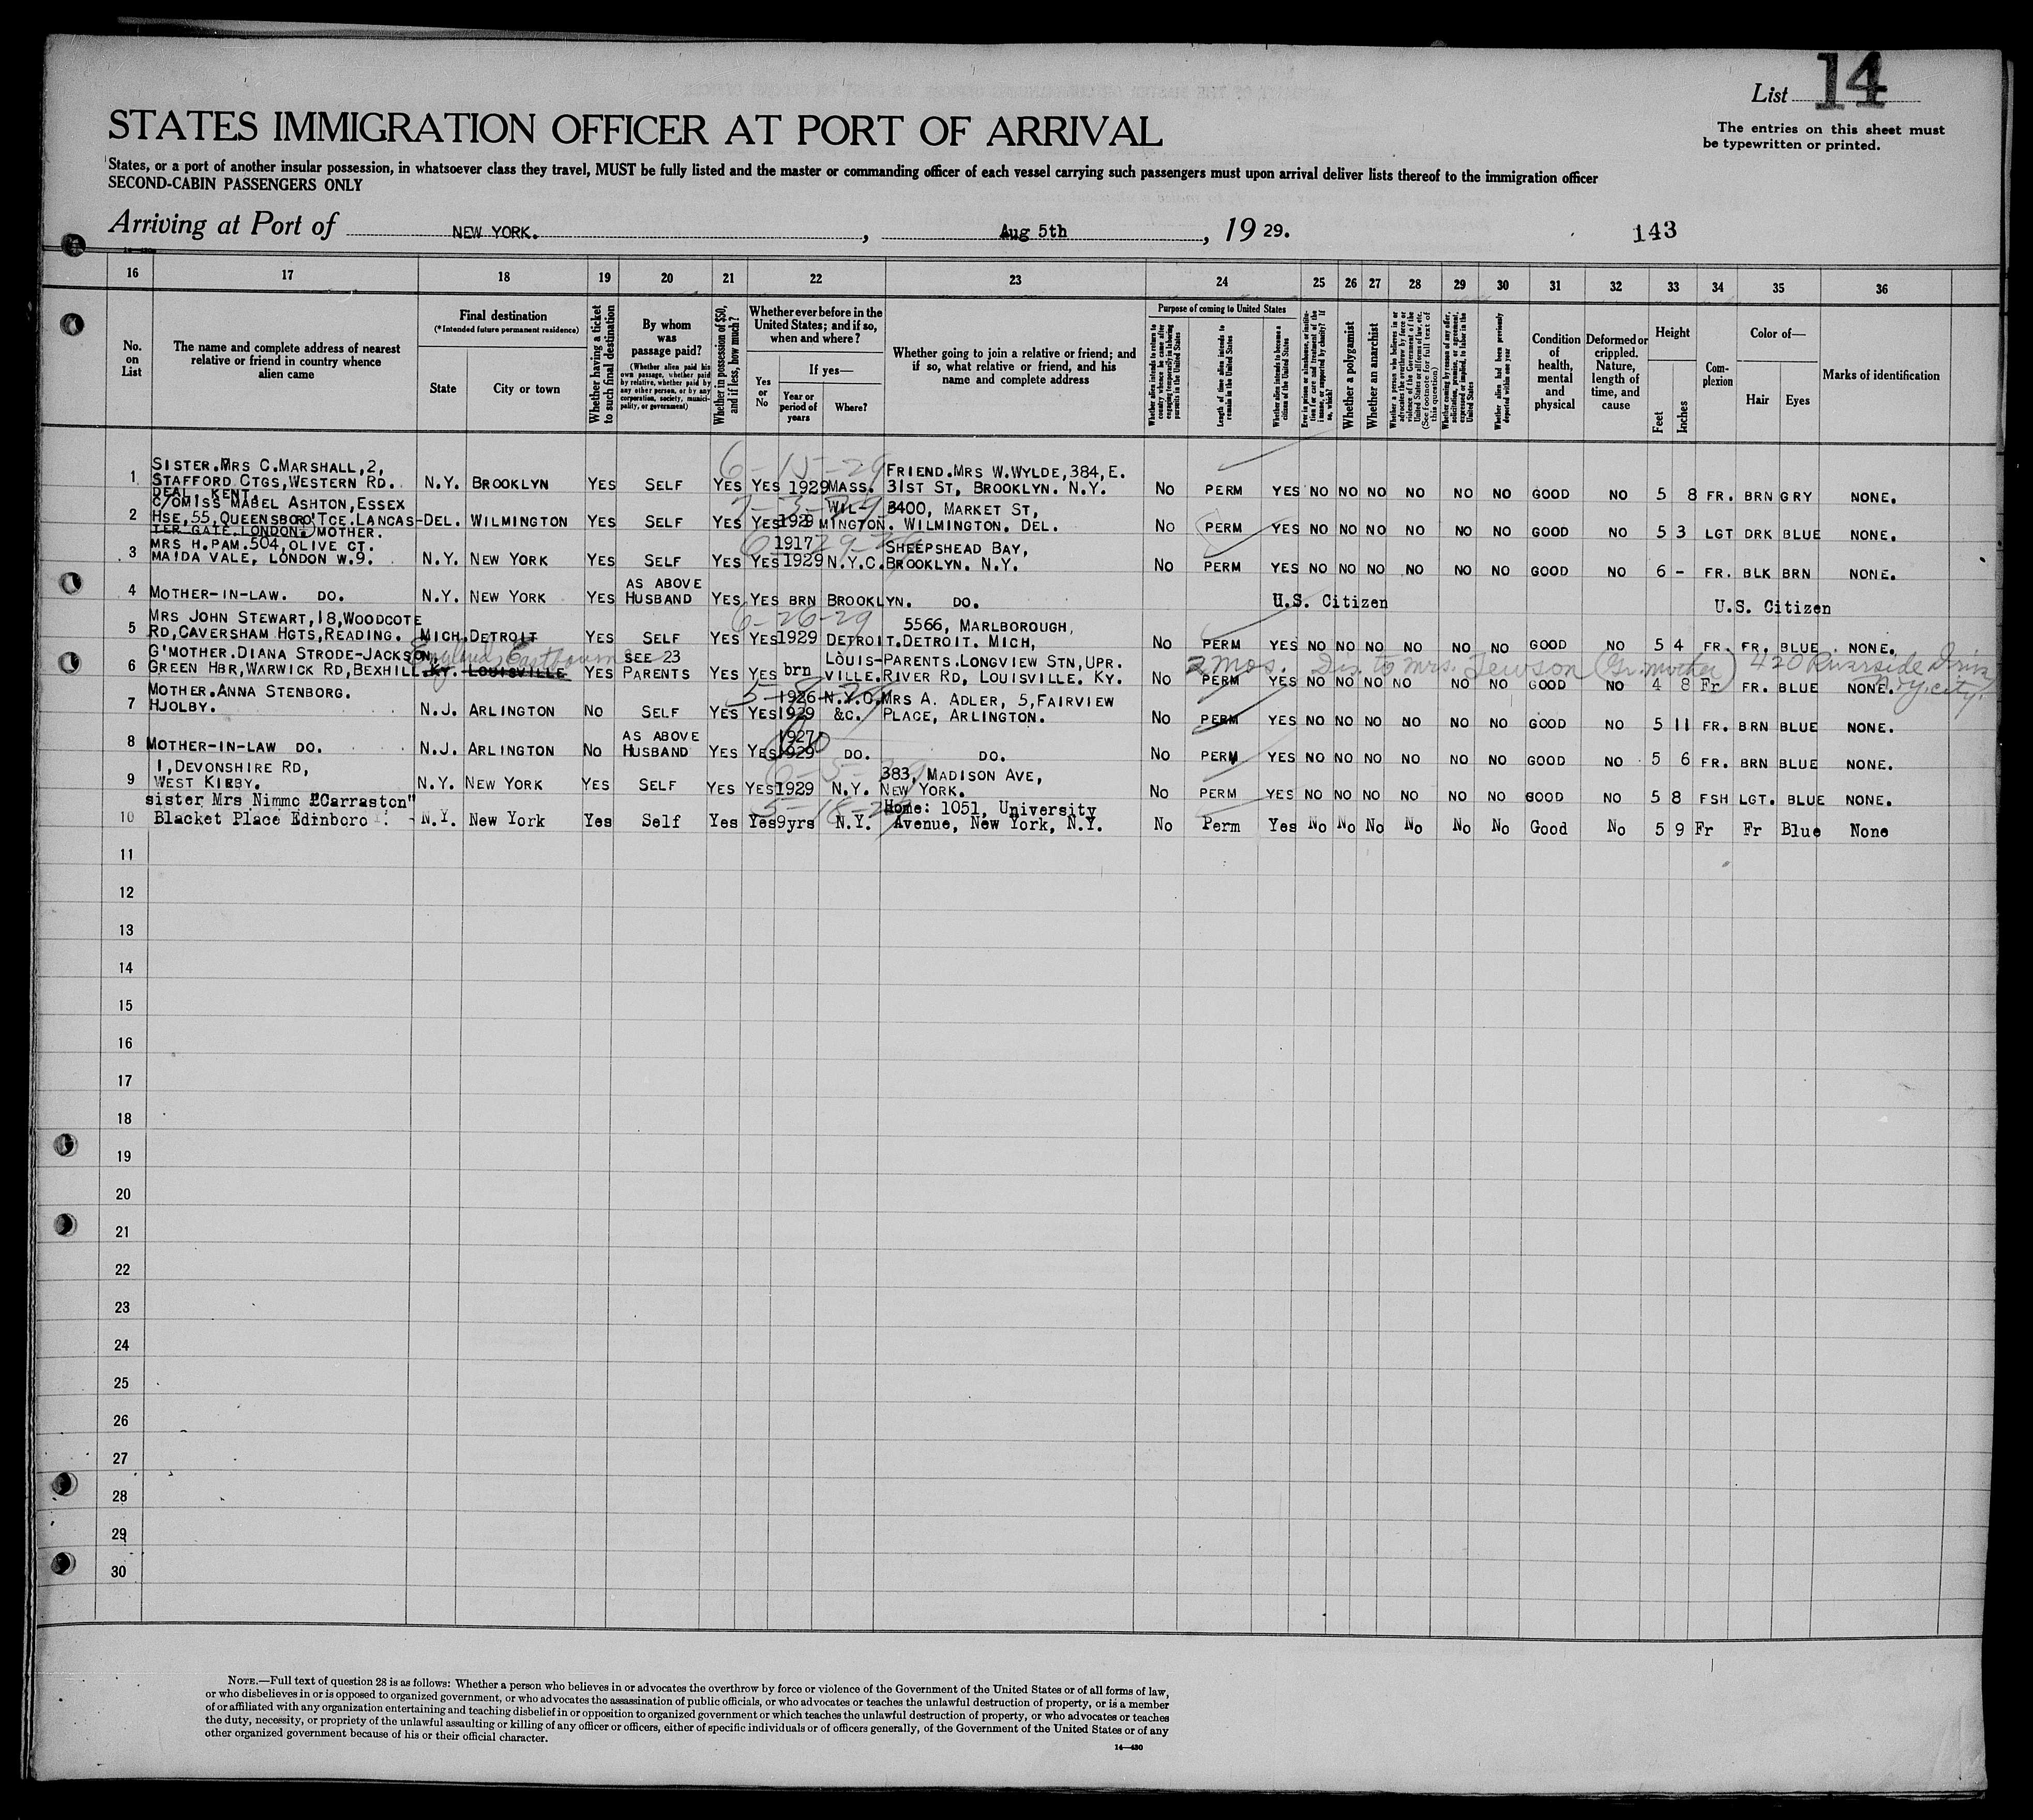 List 14
The entries on this sheet must
be typewritten or printed.
STATES IMMIGRATION OFFICER AT PORT OF ARRIVAL
States, or a port of another insular possession, in whatsoever class they travel, MUST be fully listed and the master or commanding officer of each vessel carrying such passengers must upon arrival deliver lists thereof to the immigration officer
SECOND-CABIN PASSENGERS ONLY
Arriving at Port of NEW YORK. , Aug 5th , 19 29. 143
16 17 18 19 20 21 22 23 24 25 26 27 28 29 30 31 32 33 34 35 36
No. on List
The name and complete address of nearest relative or friend in country whence alien came
Final destination
(*Intended future permanent residence)
State
City or town
Whether having a ticket to such final destination
By whom was passage paid?
(Whether alien paid his own passage, whether paid by relative, whether paid by any other person, or by any corporation, society, municipality, or government)
Whether in possession of $50, and if less, how much?
Whether ever before in the United States; and if so, when and where?
Yes or No
If yes—
Year or period of years
Where?
Whether going to join a relative or friend; and if so, what relative or friend, and his name and complete address
Purpose of coming to United States
Whether alien intends to return to country whence he came after engaging temporarily in laboring pursuits in the United States
Length of time alien intends to remain in the United States
Whether alien intends to become a citizen of the United States
Ever in prison or almshouse, or institution for care and treatment of the insane, or supported by charity? If so, which?
Whether a polygamist
Whether an anarchist
Whether a person who believes in or advocates the overthrow by force or violence of the Government of the United States or all forms of law, etc. (See footnote for full text of this question)
Whether coming by reason of any offer, solicitation, promise, or agreement, expressed or implied, to labor in the United States
Whether alien had been previously deported within one year
Condition of health, mental and physical
Deformed or crippled. Nature, length of time, and cause
Height
Feet
Inches
Complexion
Color of—
Hair
Eyes
Marks of identification
6-15-29
1 SISTER.MRS C.MARSHALL,2, STAFFORD CTGS,WESTERN RD. DEAL. KENT. N.Y. BROOKLYN YES SELF YES YES 1929 MASS. FRIEND.MRS W.WYLDE,384,E. 31ST ST, BROOKLYN. N.Y. NO PERM YES NO NO NO NO NO NO GOOD NO 5 8 FR. BRN GRY NONE.
7-3-29
2 C/OMISS MABEL ASHTON,ESSEX HSE,55,QUEENSBORO'TCE.LANCAS-TER GATE.LONDON. DEL. WILMINGTON YES SELF YES YES 1929 WIL-MINGTON. 3400, MARKET ST, WILMINGTON. DEL. NO PERM YES NO NO NO NO NO NO GOOD NO 5 3 LGT DRK BLUE NONE.
6-29-29
3 MOTHER. MRS H.PAM.504,OLIVE CT. MAIDA VALE, LONDON W.9. N.Y. NEW YORK YES SELF YES YES 1917 1929 N.Y.C. SHEEPSHEAD BAY, BROOKLYN. N.Y. NO PERM YES NO NO NO NO NO NO GOOD NO 6 - FR. BLK BRN NONE.
4 MOTHER-IN-LAW. DO. N.Y. NEW YORK YES AS ABOVE HUSBAND YES YES BRN BROOKLYN. DO. U.S. Citizen U.S. Citizen
6-26-29
5 MRS JOHN STEWART,18,WOODCOTE RD,CAVERSHAM HGTS,READING. MICH.DETROIT YES SELF YES YES 1929 DETROIT. 5566, MARLBOROUGH, DETROIT. MICH, NO PERM YES NO NO NO NO NO NO GOOD NO 5 4 FR. FR. BLUE NONE.
England, Eastbourn 2 mos. Dis. to Mrs. Jewson (Gr. mother) 420 Riverside Drive N.Y. City
6 G'MOTHER.DIANA STRODE-JACKSON, GREEN HBR,WARWICK RD,BEXHILL. KY. LOUISVILLE YES SEE 23 PARENTS YES YES brn LOUIS-VILLE. PARENTS.LONGVIEW STN,UPR. RIVER RD, LOUISVILLE. KY. NO PERM YES NO NO NO NO NO NO GOOD NO 4 8 Fr FR. BLUE NONE.
7 MOTHER.ANNA STENBORG. HJOLBY. N.J. ARLINGTON NO SELF YES YES 1926-1929 N.Y.C. &C. MRS A. ADLER, 5,FAIRVIEW PLACE, ARLINGTON. NO PERM YES NO NO NO NO NO NO GOOD NO 5 11 FR. BRN BLUE NONE.
8 MOTHER-IN-LAW DO. N.J. ARLINGTON NO AS ABOVE HUSBAND YES YES 1927 1929 DO. DO. NO PERM YES NO NO NO NO NO NO GOOD NO 5 6 FR. BRN BLUE NONE.
9 1,DEVONSHIRE RD, WEST KIRBY. N.Y. NEW YORK YES SELF YES YES 1929 N.Y. 383, MADISON AVE, NEW YORK. NO PERM YES NO NO NO NO NO NO GOOD NO 5 8 FSH LGT. BLUE NONE.
5-18-29
10 sister Mrs Nimmo "Carraston" Blacket Place Edinboro N.Y. New York Yes Self Yes Yes 9yrs N.Y. Home: 1051, University Avenue, New York, N.Y. No Perm Yes No No No No No No Good No 5 9 Fr Fr Blue None
11
12
13
14
15
16
17
18
19
20
21
22
23
24
25
26
27
28
29
30
NOTE.—Full text of question 28 is as follows: Whether a person who believes in or advocates the overthrow by force or violence of the Government of the United States or of all forms of law,
or who disbelieves in or is opposed to organized government, or who advocates the assassination of public officials, or who advocates or teaches the unlawful destruction of property, or is a member
of or affiliated with any organization entertaining and teaching disbelief in or opposition to organized government or which teaches the unlawful destruction of property, or who advocates or teaches
the duty, necessity, or propriety of the unlawful assaulting or killing of any officer or officers, either of specific individuals or of officers generally, of the Government of the United States or of any
other organized government because of his or their official character.
14—430